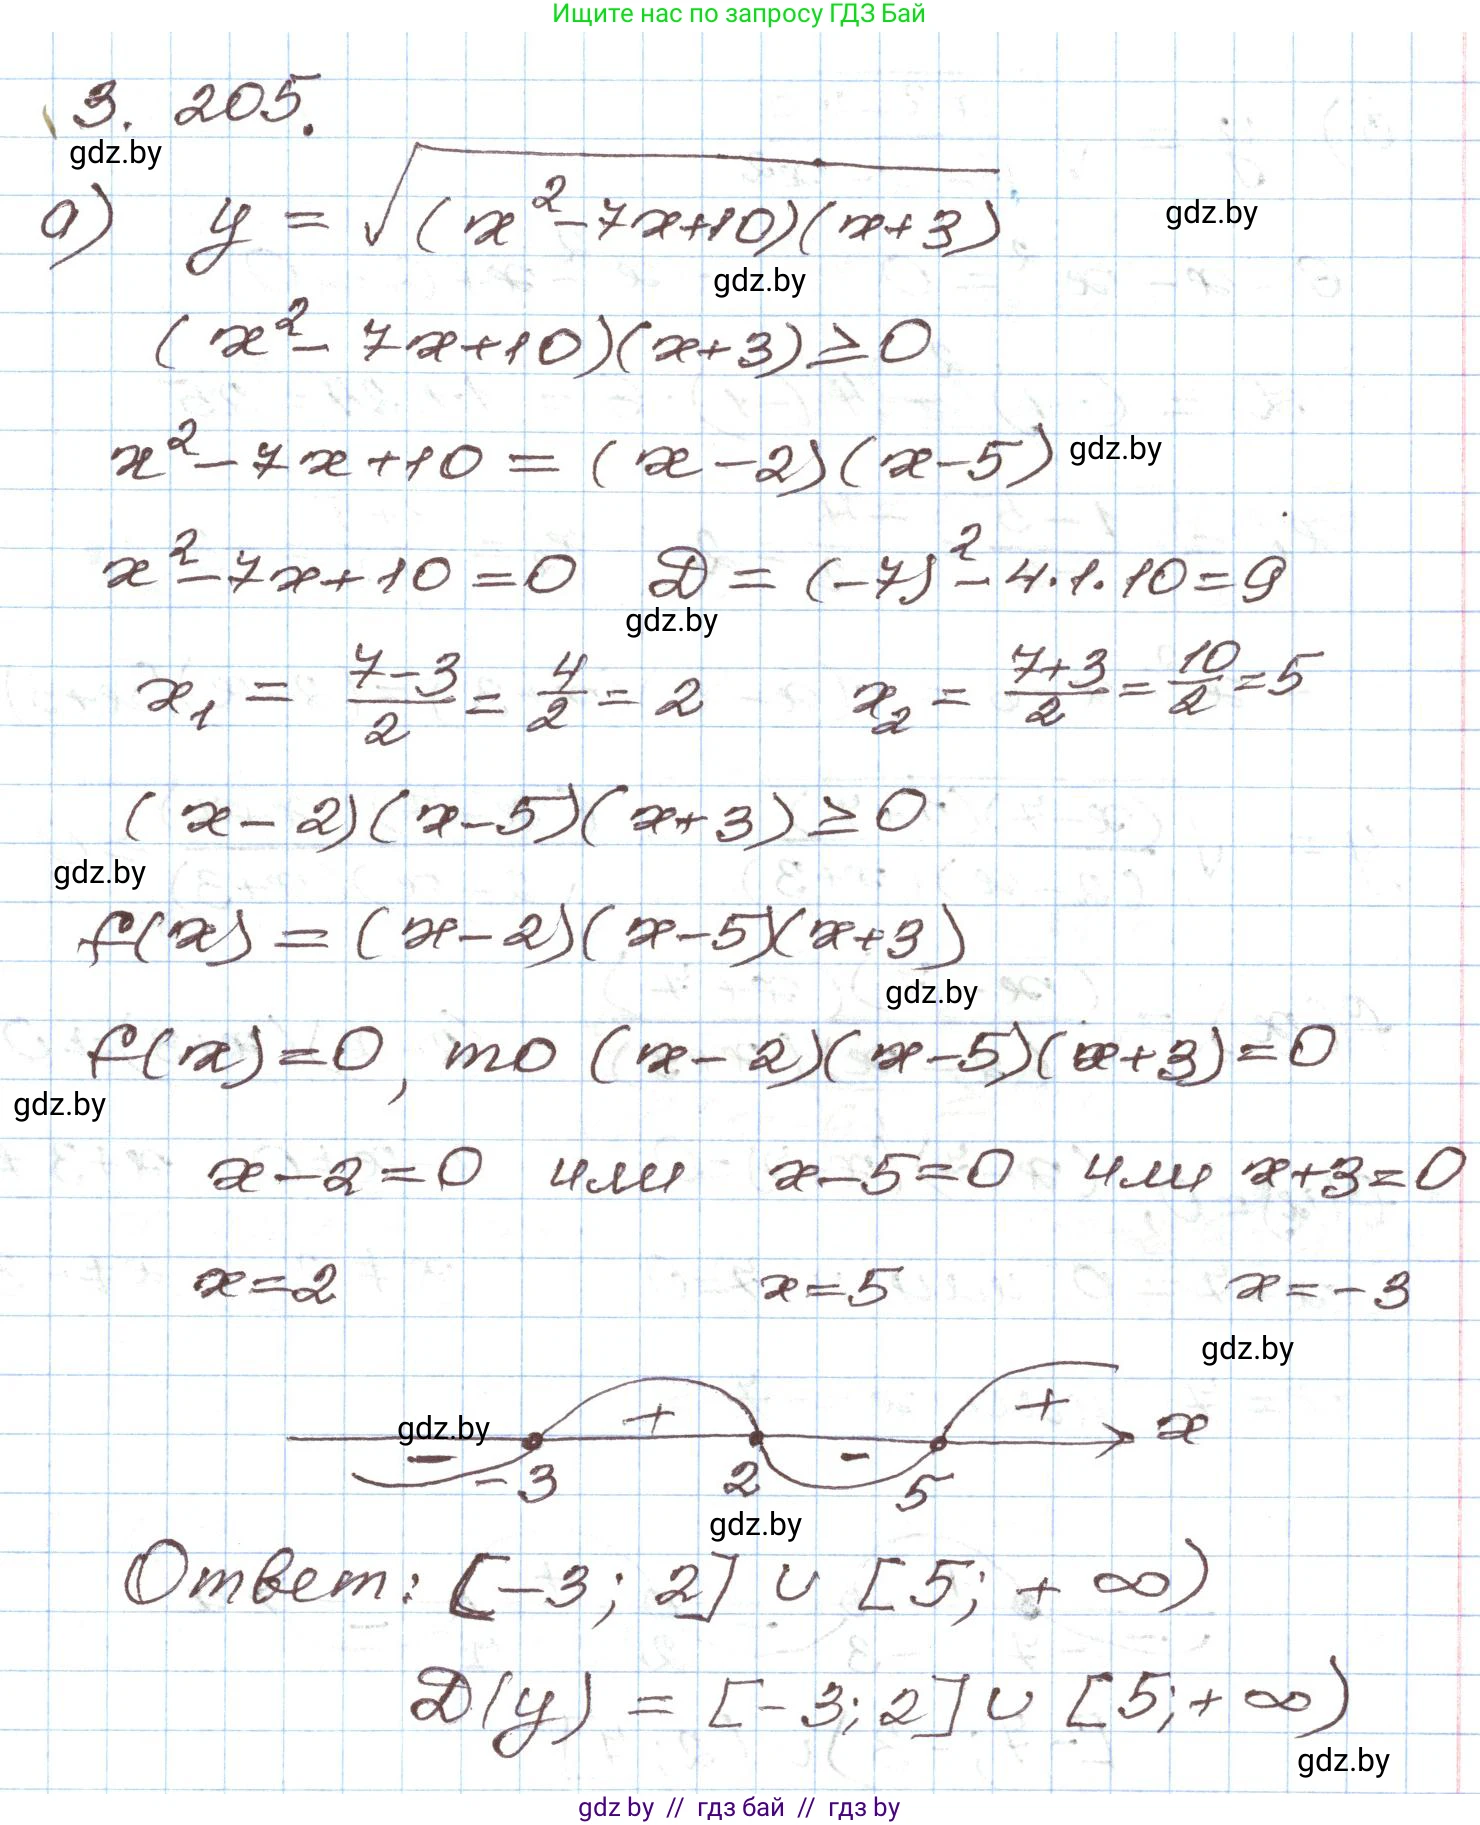 Ищите нас по запросу ГДЗ Бай
3. 205.
gdz.by
а) y = √((x² - 7x + 10)(x + 3))
gdz.by
gdz.by
(x² - 7x + 10)(x + 3) ≥ 0
x² - 7x + 10 = (x - 2)(x - 5)
gdz.by
x² - 7x + 10 = 0 D = (-7)² - 4·1·10 = 9
gdz.by
x₁ = (7-3)/2 = 4/2 = 2 x₂ = (7+3)/2 = 10/2 = 5
(x - 2)(x - 5)(x + 3) ≥ 0
gdz.by
f(x) = (x - 2)(x - 5)(x + 3)
gdz.by
f(x) = 0, то (x - 2)(x - 5)(x + 3) = 0
gdz.by
x - 2 = 0 или x - 5 = 0 или x + 3 = 0
x = 2 x = 5 x = -3
gdz.by
gdz.by
- + - + x
-3 2 5
gdz.by
Ответ: [-3; 2] ∪ [5; +∞)
D(y) = [-3; 2] ∪ [5; +∞)
gdz.by
gdz by // гдз бай // гдз by